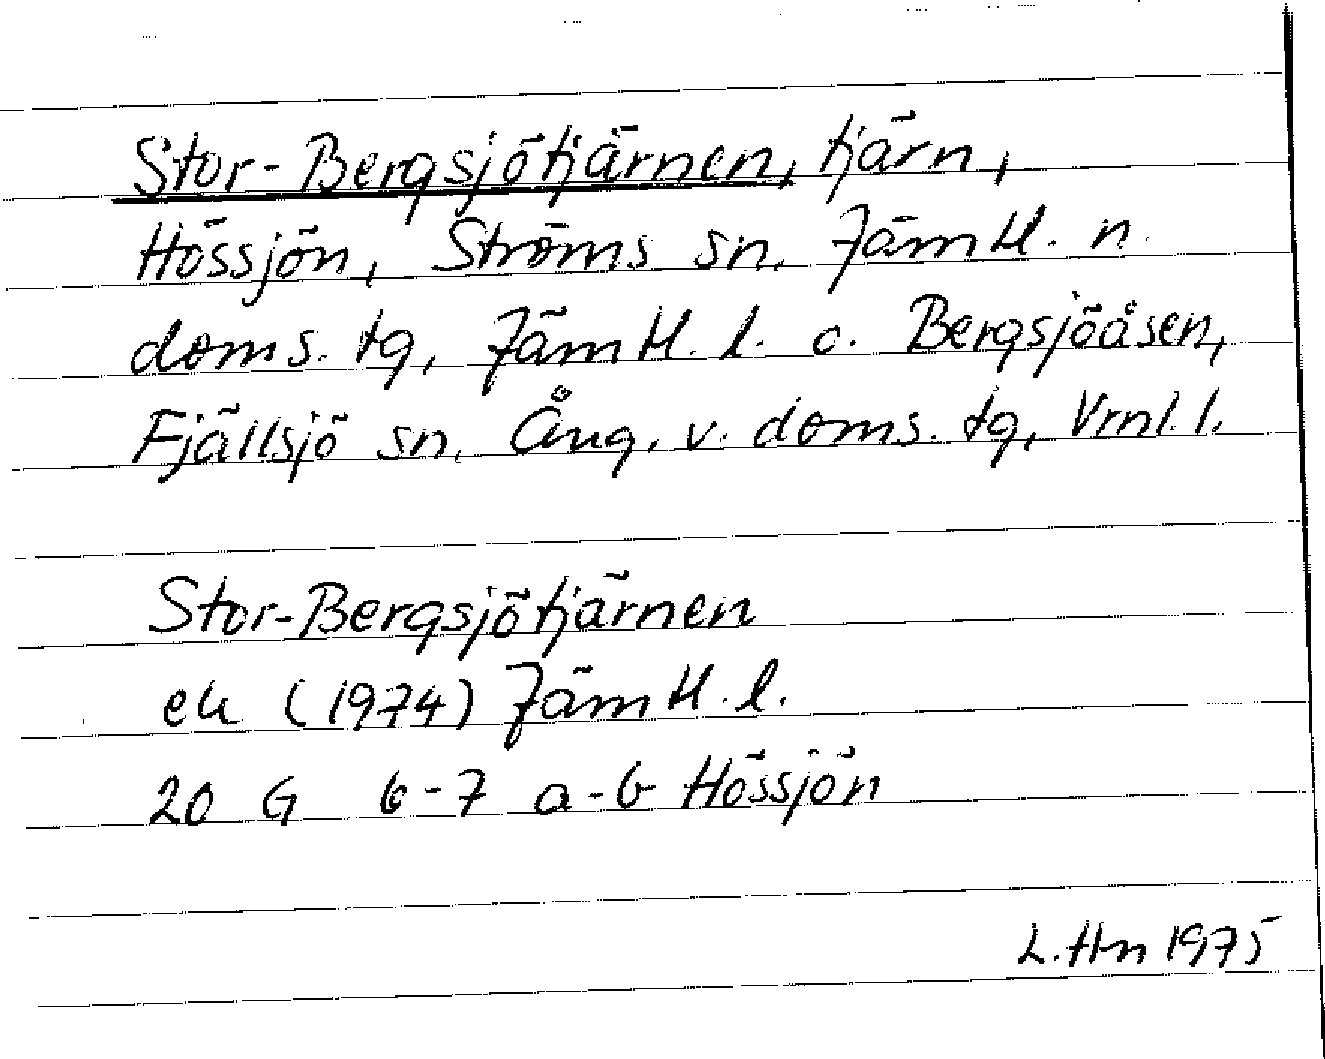 Stor-Bergsjötjärnen, tjärn,
Hössjön, Ströms sn. Jämtl. n.
doms. tg, Jämtl. l. o. Bergsjöåsen,
Fjällsjö sn. Ång. v. doms. tg, Vrnl. l.
Stor-Bergsjötjärnen
ek (1974) Jämtl. l.
20 G 6-7 a-b Hössjön
L. Hn 1975